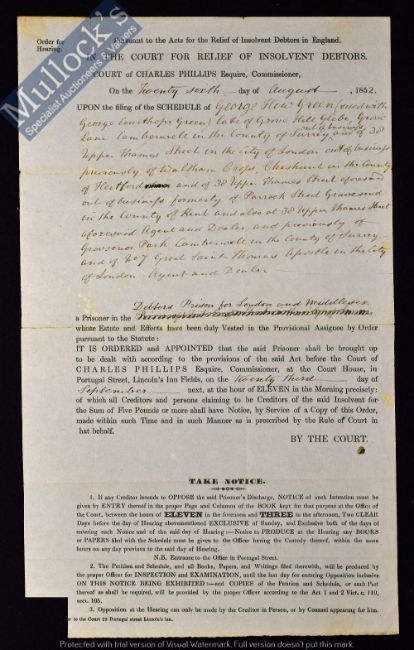 Mullock's
Specialist Auctioneers & Valuers
Order for
Hearing.
Pursuant to the Acts for the Relief of Insolvent Debtors in England.
IN THE COURT FOR RELIEF OF INSOLVENT DEBTORS.
COURT of CHARLES PHILLIPS Esquire, Commissioner,
On the Twenty sixth day of August, 1852.
UPON the filing of the SCHEDULE of George How Green (sued with
George Green) late of Grove Hill Globe, Grove
Lane Camberwell in the County of Surrey out of business and of 38
Upper Thames Street in the City of London out of business
previously of Waltham Cross, Cheshunt in the County
of Hertford and of 38 Upper Thames Street aforesaid
out of business formerly of Parrock Street Gravesend
in the County of Kent and also at 38 Upper Thames Street
aforesaid Agent and Dealer, and previously of
Grosvenor Park Camberwell in the County of Surrey
and of 20 Great Saint Thomas Apostle in the City
of London Agent and Dealer
Debtors Prison for London and Middlesex
a Prisoner in the
whose Estate and Effects have been duly Vested in the Provisional Assignee by Order
pursuant to the Statute:
IT IS ORDERED and APPOINTED that the said Prisoner shall be brought up
to be dealt with according to the provisions of the said Act before the Court of
CHARLES PHILLIPS Esquire, Commissioner, at the Court House, in
Portugal Street, Lincoln's Inn Fields, on the Twenty third day of
September next, at the hour of ELEVEN in the Morning precisely:
of which all Creditors and persons claiming to be Creditors of the said Insolvent for
the Sum of Five Pounds or more shall have Notice, by Service of a Copy of this Order,
made within such Time and in such Manner as is prescribed by the Rule of Court in
that behalf.
BY THE COURT.
TAKE NOTICE.
1. If any Creditor intends to OPPOSE the said Prisoner's Discharge, NOTICE of such Intention must be
given by ENTRY thereof in the proper Page and Columns of the BOOK kept for that purpose at the Office of
the Court, between the hours of ELEVEN in the forenoon and THREE in the afternoon, Two CLEAR
Days before the day of Hearing abovementioned EXCLUSIVE of Sunday, and Exclusive both of the days of
entering such Notice and of the said day of Hearing:—Notice to PRODUCE at the Hearing any BOOKS
or PAPERS filed with the Schedule must be given to the Officer having the Custody thereof, within the same
hours on any day previous to the said day of Hearing.
N.B. Entrance to the Office in Portugal Street.
2. The Petition and Schedule, and all Books, Papers, and Writings filed therewith, will be produced by
the proper Officer for INSPECTION and EXAMINATION, until the last day for entering Opposition inclusive
ON THIS NOTICE BEING EXHIBITED:—and COPIES of the Petition and Schedule, or such Part
thereof as shall be required, will be provided by the proper Officer according to the Act 1 and 2 Vict. c. 110,
sect. 105.
3. Opposition at the Hearing can only be made by the Creditor in Person, or by Counsel appearing for him.
to the Court 23 Portugal street Lincoln's Inn.
Protected with free version of Watermark. Full version doesn't put this mark.